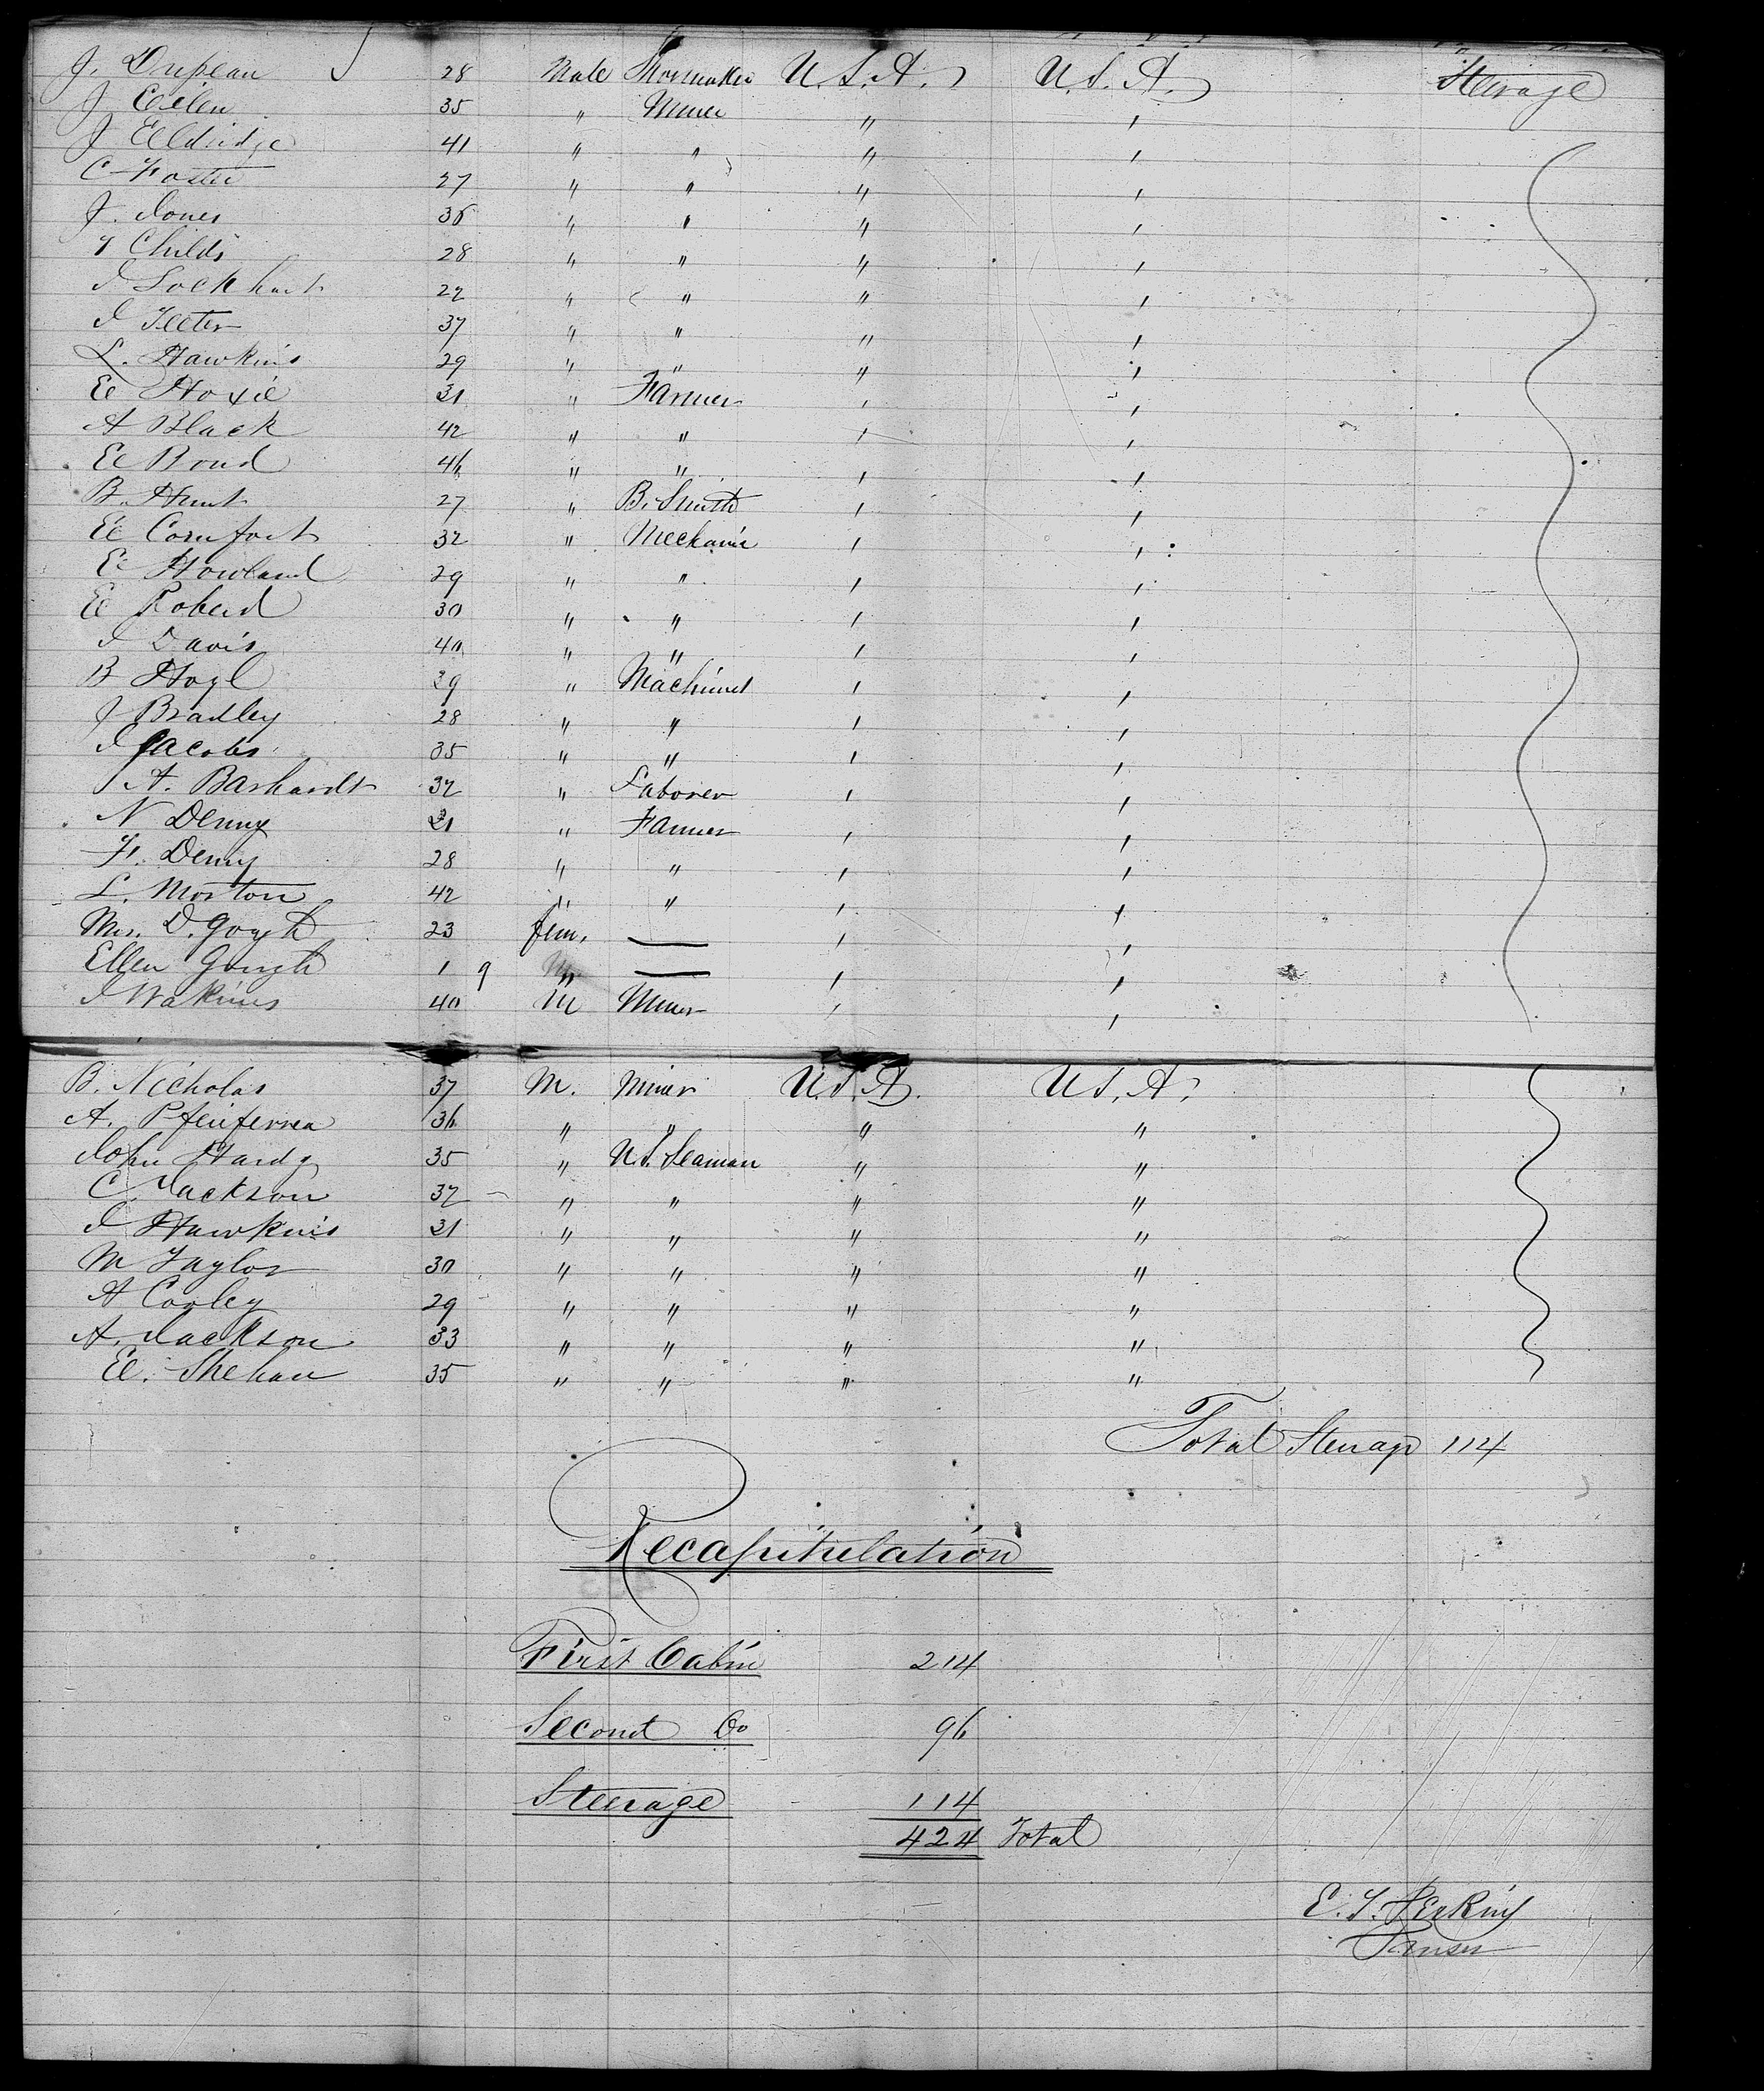 J. Dupeau 28 Male Shoemaker U.S.A. U.S.A. Steerage
J Eilen 35 " Miner " "
J Elldridge 41 " " " "
C Foster 27 " " " "
J. Jones 36 " " " "
Childs 28 " " " "
J Lockhart 22 " " " "
J Teeter 37 " " " "
L. Hawkins 29 " " " "
E Hoxie 31 " Farmer " "
A Black 42 " " " "
E Bond 46 " " " "
B. Hunt 27 " B. Smith " "
E Comfort 32 " Mechanic " "
E Howland 29 " " " "
E Roberd 30 " " " "
J Davis 40 " " " "
B Hogl 29 " Machinist " "
J Bradley 28 " " " "
J Jacobs 35 " " " "
A. Barhardt 32 " Laborer " "
N Denny 21 " Farmer " "
F. Denny 28 " " " "
L. Morton 42 " " " "
Mrs. D. Gough 23 fem, — " "
Ellen Gough 1 9 " — " "
J Wakins 40 M Miner " "
B. Nicholas 37 M. Miner U.S.A. U.S.A.
A. 36 " " " "
John Hardy 35 " U.S. Seaman " "
C. Jackson 32 " " " "
J Hawkins 21 " " " "
M Taylor 30 " " " "
A Cooley 29 " " " "
A. Jackson 33 " " " "
E. Shehan 35 " " " "
Total Steerage 114
Recapitulation
First Cabin 214
Second Do 96
Steerage 114
424 Total
E. T. Perkins
Purser